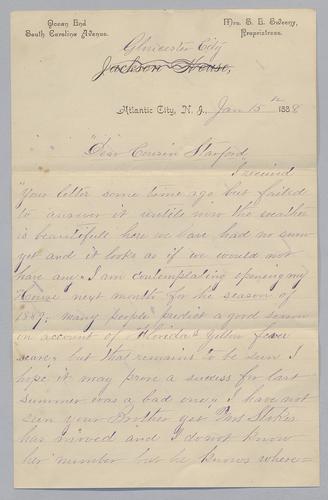 Ocean End
South Carolina Avenue.
Mrs. S. E. Sweeny,
Proprietress.
Gloucester City
Jackson House,
Atlantic City, N. J., Jan 15th 1888
"Dear Cousin Stanford"
I received
Your letter some time ago but failed
to answer it until now the weather
is beautiful here we have had no snow
yet and it looks as if we would not
have any. I am contemplating opening my
House next month for the season of
1889; many people predict a good season
on account of Florida's Yellow fever
scare, but that remains to be seen I
hope it may prove a success for last
Summer was a bad one, I have not
seen your Brother yet Mrs Stokes
has moved and I do not know
her number but he knows where=